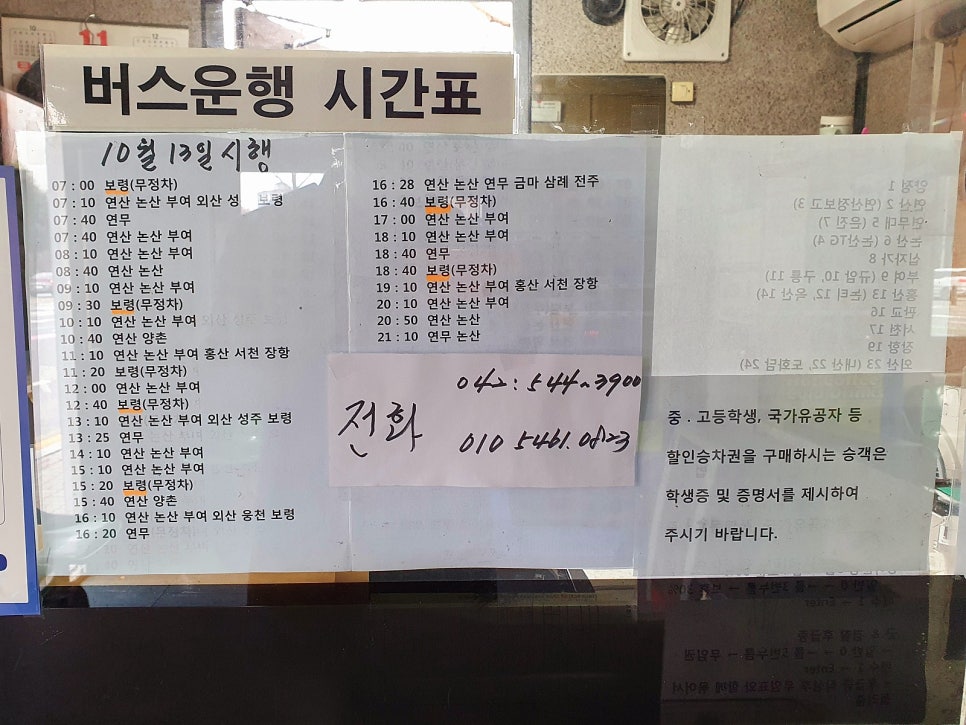 11
버스운행 시간표
10월 13일 시행
07:00 보령(무정차)
07:10 연산 논산 부여 외산 성주 보령
07:40 연무
07:40 연산 논산 부여
08:10 연산 논산 부여
08:40 연산 논산
09:10 연산 논산 부여
09:30 보령(무정차)
10:10 연산 논산 부여
10:40 연산 양촌
11:10 연산 논산 부여 홍산 서천 장항
11:20 보령(무정차)
12:00 연산 논산 부여
12:40 보령(무정차)
13:10 연산 논산 부여 외산 성주 보령
13:25 연무
14:10 연산 논산 부여
15:10 연산 논산 부여
15:20 보령(무정차)
15:40 연산 양촌
16:10 연산 논산 부여 외산 웅천 보령
16:20 연무
16:28 연산 논산 연무 금마 삼례 전주
16:40 보령(무정차)
17:00 연산 논산 부여
18:10 연산 논산 부여
18:40 연무
18:40 보령(무정차)
19:10 연산 논산 부여 홍산 서천 장항
20:10 연산 논산 부여
20:50 연산 논산
21:10 연무 논산
전화
042:544~3900
010 5461.0823
안정 1
연산 2 (연산정보고 3)
연무대 5 (은진 7)
논산 6 (논산TG 4)
십자가 8
부여 9 (규암 10, 구룡 11)
홍산 13 (논티 12, 옥산 14)
판교 16
서천 17
장항 19
외산 23 (내산 22, 도화담 24)
중.고등학생, 국가유공자 등
할인승차권을 구매하시는 승객은
학생증 및 증명서를 제시하여
주시기 바랍니다.